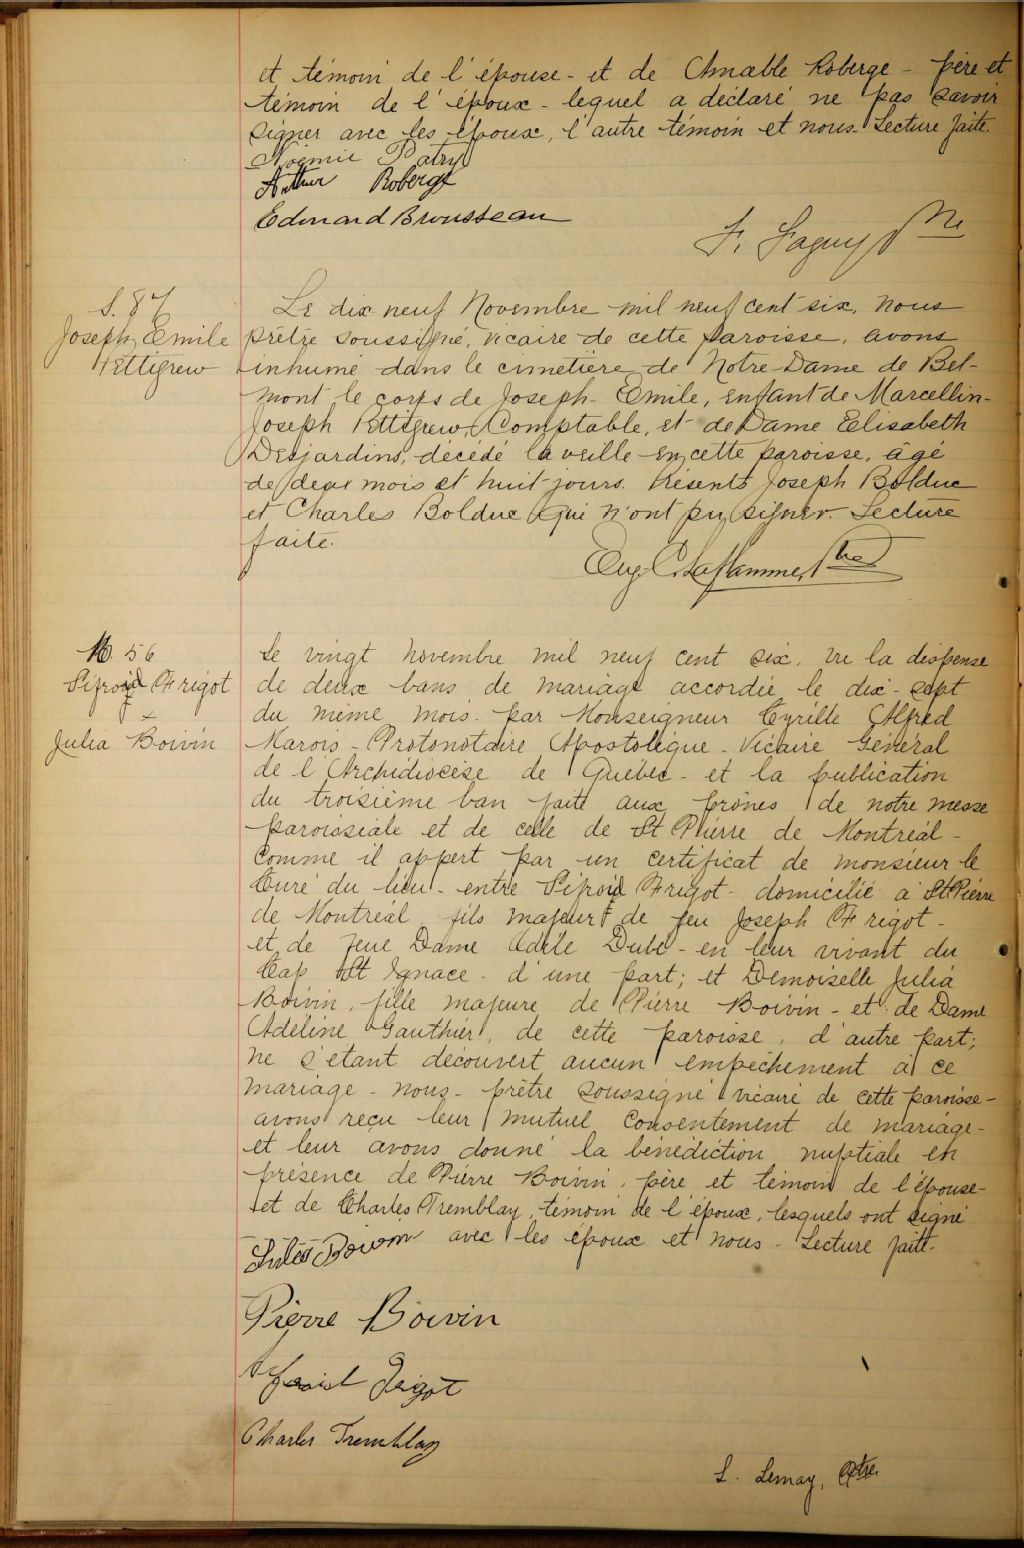 et témoin de l'épouse - et de Amable Roberge - père et
témoin de l'époux - lequel a déclaré ne pas savoir
signer avec les époux, l'autre témoin et nous. Lecture faite.
Noémie Patry
Arthur Roberge
Edouard Brousseau
F. Faguy Ptre
S. 87
Joseph Emile
Pettigrew
Le dix neuf Novembre mil neuf cent six, nous
prêtre soussigné, vicaire de cette paroisse, avons
inhumé dans le cimetière de Notre-Dame de Bel-
mont le corps de Joseph-Emile, enfant de Marcellin-
Joseph Pettigrew, Comptable, et de Dame Elisabeth
Desjardins, décédé la veille en cette paroisse, âgé
de deux mois et huit jours. Présents Joseph Bolduc
et Charles Bolduc qui n'ont pu signer. Lecture
faite.
Eug. C. Laflamme, Ptre
M 56
Sifroid Frigot
+
Julia Boivin
Le vingt novembre mil neuf cent six, vu la dispense
de deux bans de mariage accordée le dix-sept
du même mois par Monseigneur Cyrille Alfred
Marois - Protonotaire Apostolique - Vicaire Général
de l'Archidiocèse de Québec - et la publication
du troisième ban faite aux prônes de notre messe
paroissiale et de celle de St Pierre de Montréal -
comme il appert par un certificat de monsieur le
Curé du lieu - entre Sifroid Frigot - domicilié à St Pierre
de Montréal, fils majeur de feu Joseph Frigot -
et de feue Dame Adèle Dubé - en leur vivant du
Cap St Ignace - d'une part; et Demoiselle Julia
Boivin, fille majeure de Pierre Boivin - et de Dame
Adéline Gauthier, de cette paroisse, d'autre part;
ne s'étant découvert aucun empêchement à ce
mariage - nous - prêtre soussigné vicaire de cette paroisse -
avons reçu leur mutuel consentement de mariage -
et leur avons donné la bénédiction nuptiale en
présence de Pierre Boivin, père et témoin de l'épouse -
et de Charles Tremblay, témoin de l'époux, lesquels ont signé
avec les époux et nous - Lecture faite.
Boivin
Pierre Boivin
Frigot
Charles Tremblay
L. Lemay, Ptre